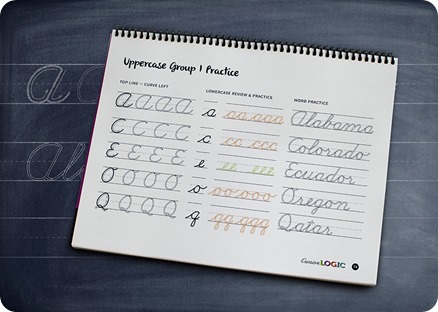 Uppercase Group 1 Practice
TOP LINE — CURVE LEFT LOWERCASE REVIEW & PRACTICE WORD PRACTICE
A A A A a aa aaa Alabama
C C C C C c cc ccc Colorado
E E E E E e ee eee Ecuador
O O O O O o oo ooo Oregon
Q Q Q Q q qq qqq Qatar
CursiveLOGIC